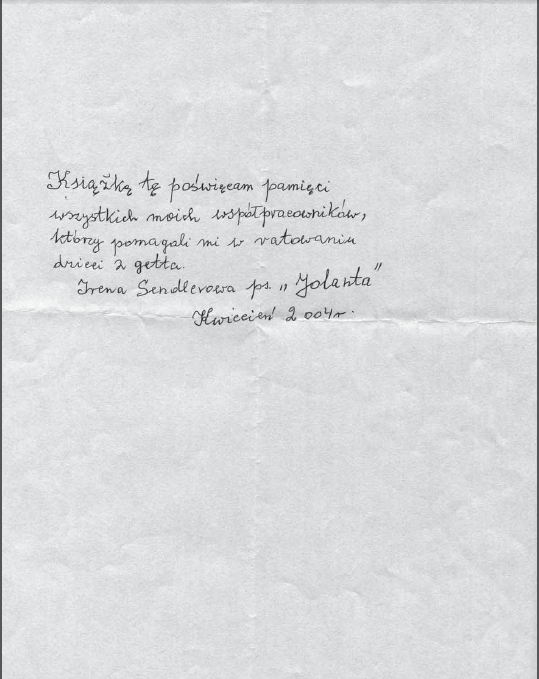 Książkę tę poświęcam pamięci
wszystkich moich współpracowników,
którzy pomagali mi w ratowaniu
dzieci z getta.
Irena Sendlerowa ps. „Jolanta”
Kwiecień 2004r.